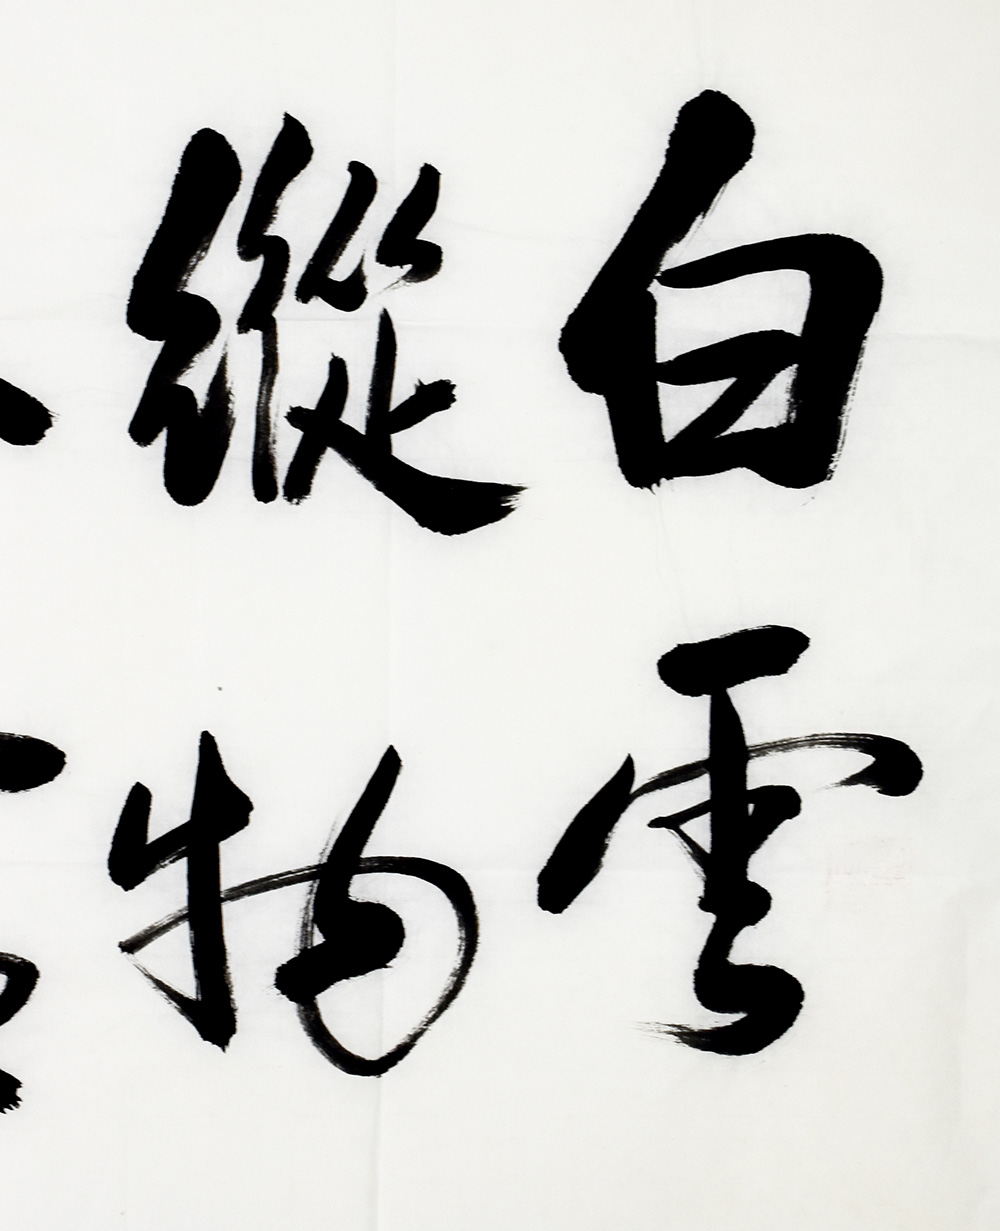 白雲
縱物